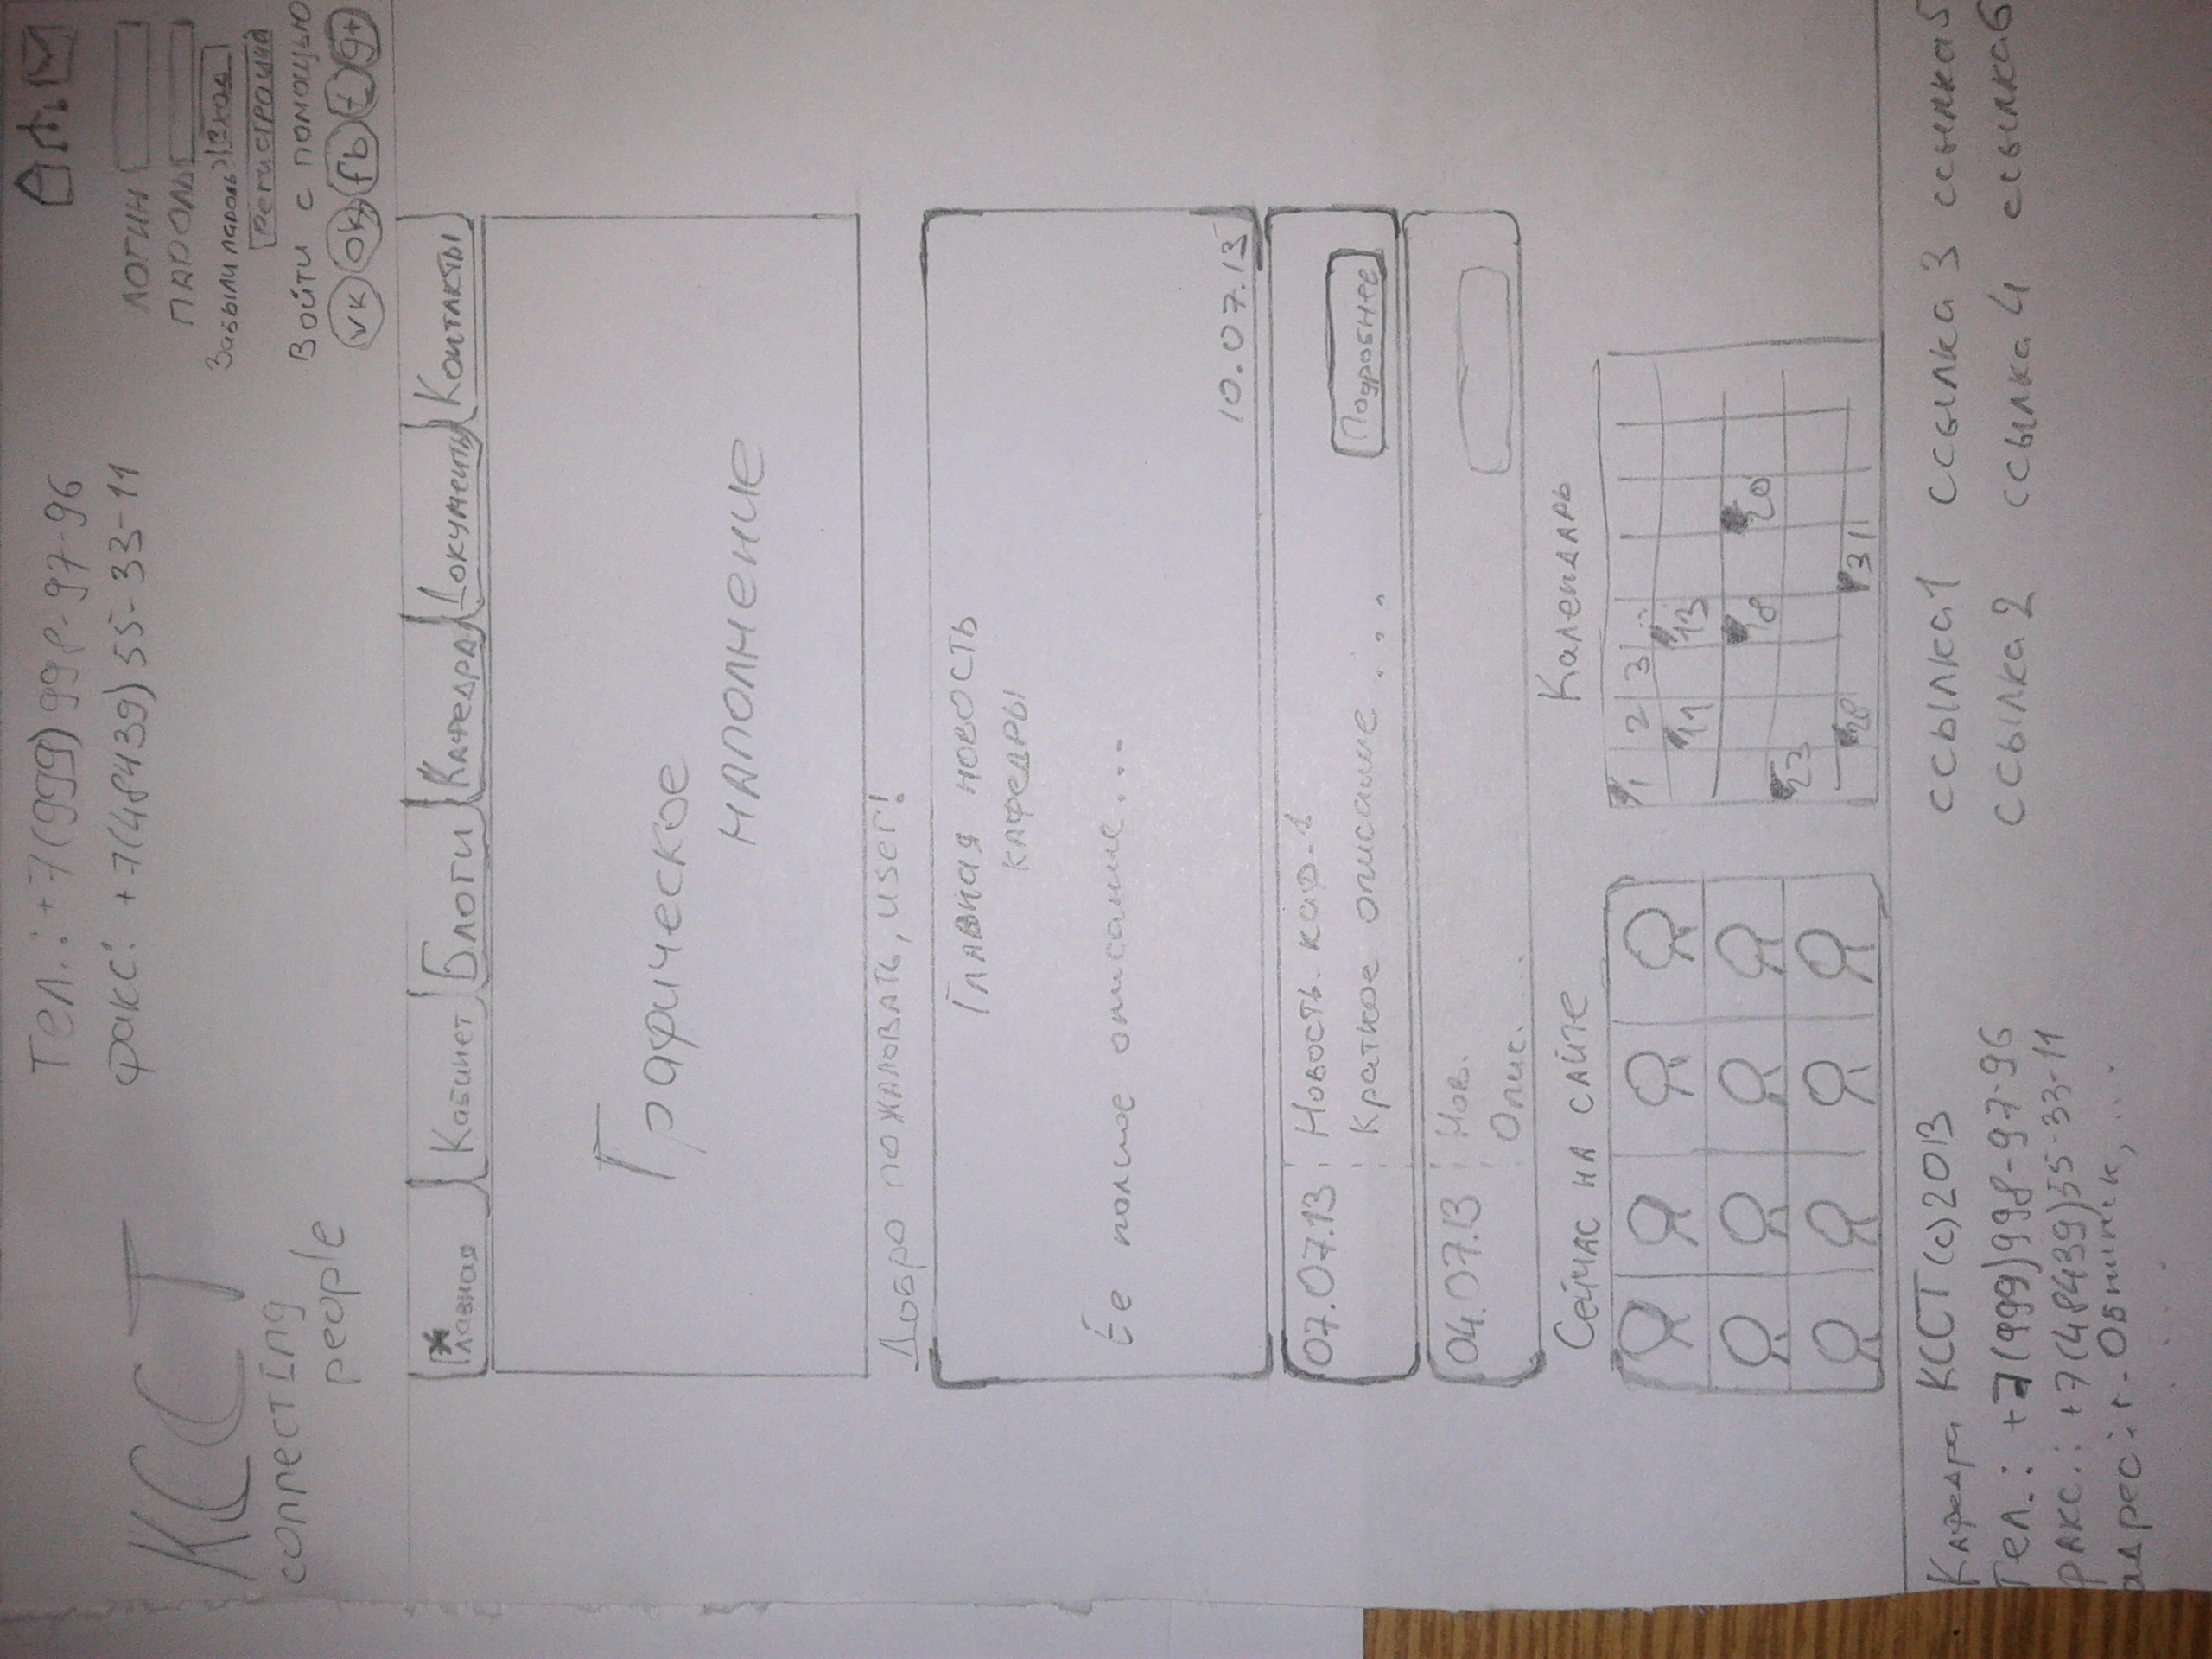 КССТ
connecting
people
Тел.: +7(999)998-97-96
факс: +7(48439)55-33-11
Логин
Пароль
Забыли пароль? Вход
Регистрация
Войти с помощью
vk ok fb t g+
Главная Кабинет Блоги Кафедра Документы Контакты
Графическое
наполнение
Добро пожаловать, user!
Главная новость
кафедры
Её полное описание...
10.07.13
07.07.13 Новость каф-1
Краткое описание ...
Подробнее
04.07.13 Нов.
Опис...
Сейчас на сайте
Календарь
1 2 3 ...
11 13
18 20
23
28 31
Кафедра КССТ (c) 2013
Тел.: +7(999)998-97-96
факс.: +7(48439)55-33-11
адрес: г. Обнинск, ...
ссылка 1 ссылка 3 ссылка 5
ссылка 2 ссылка 4 ссылка 6